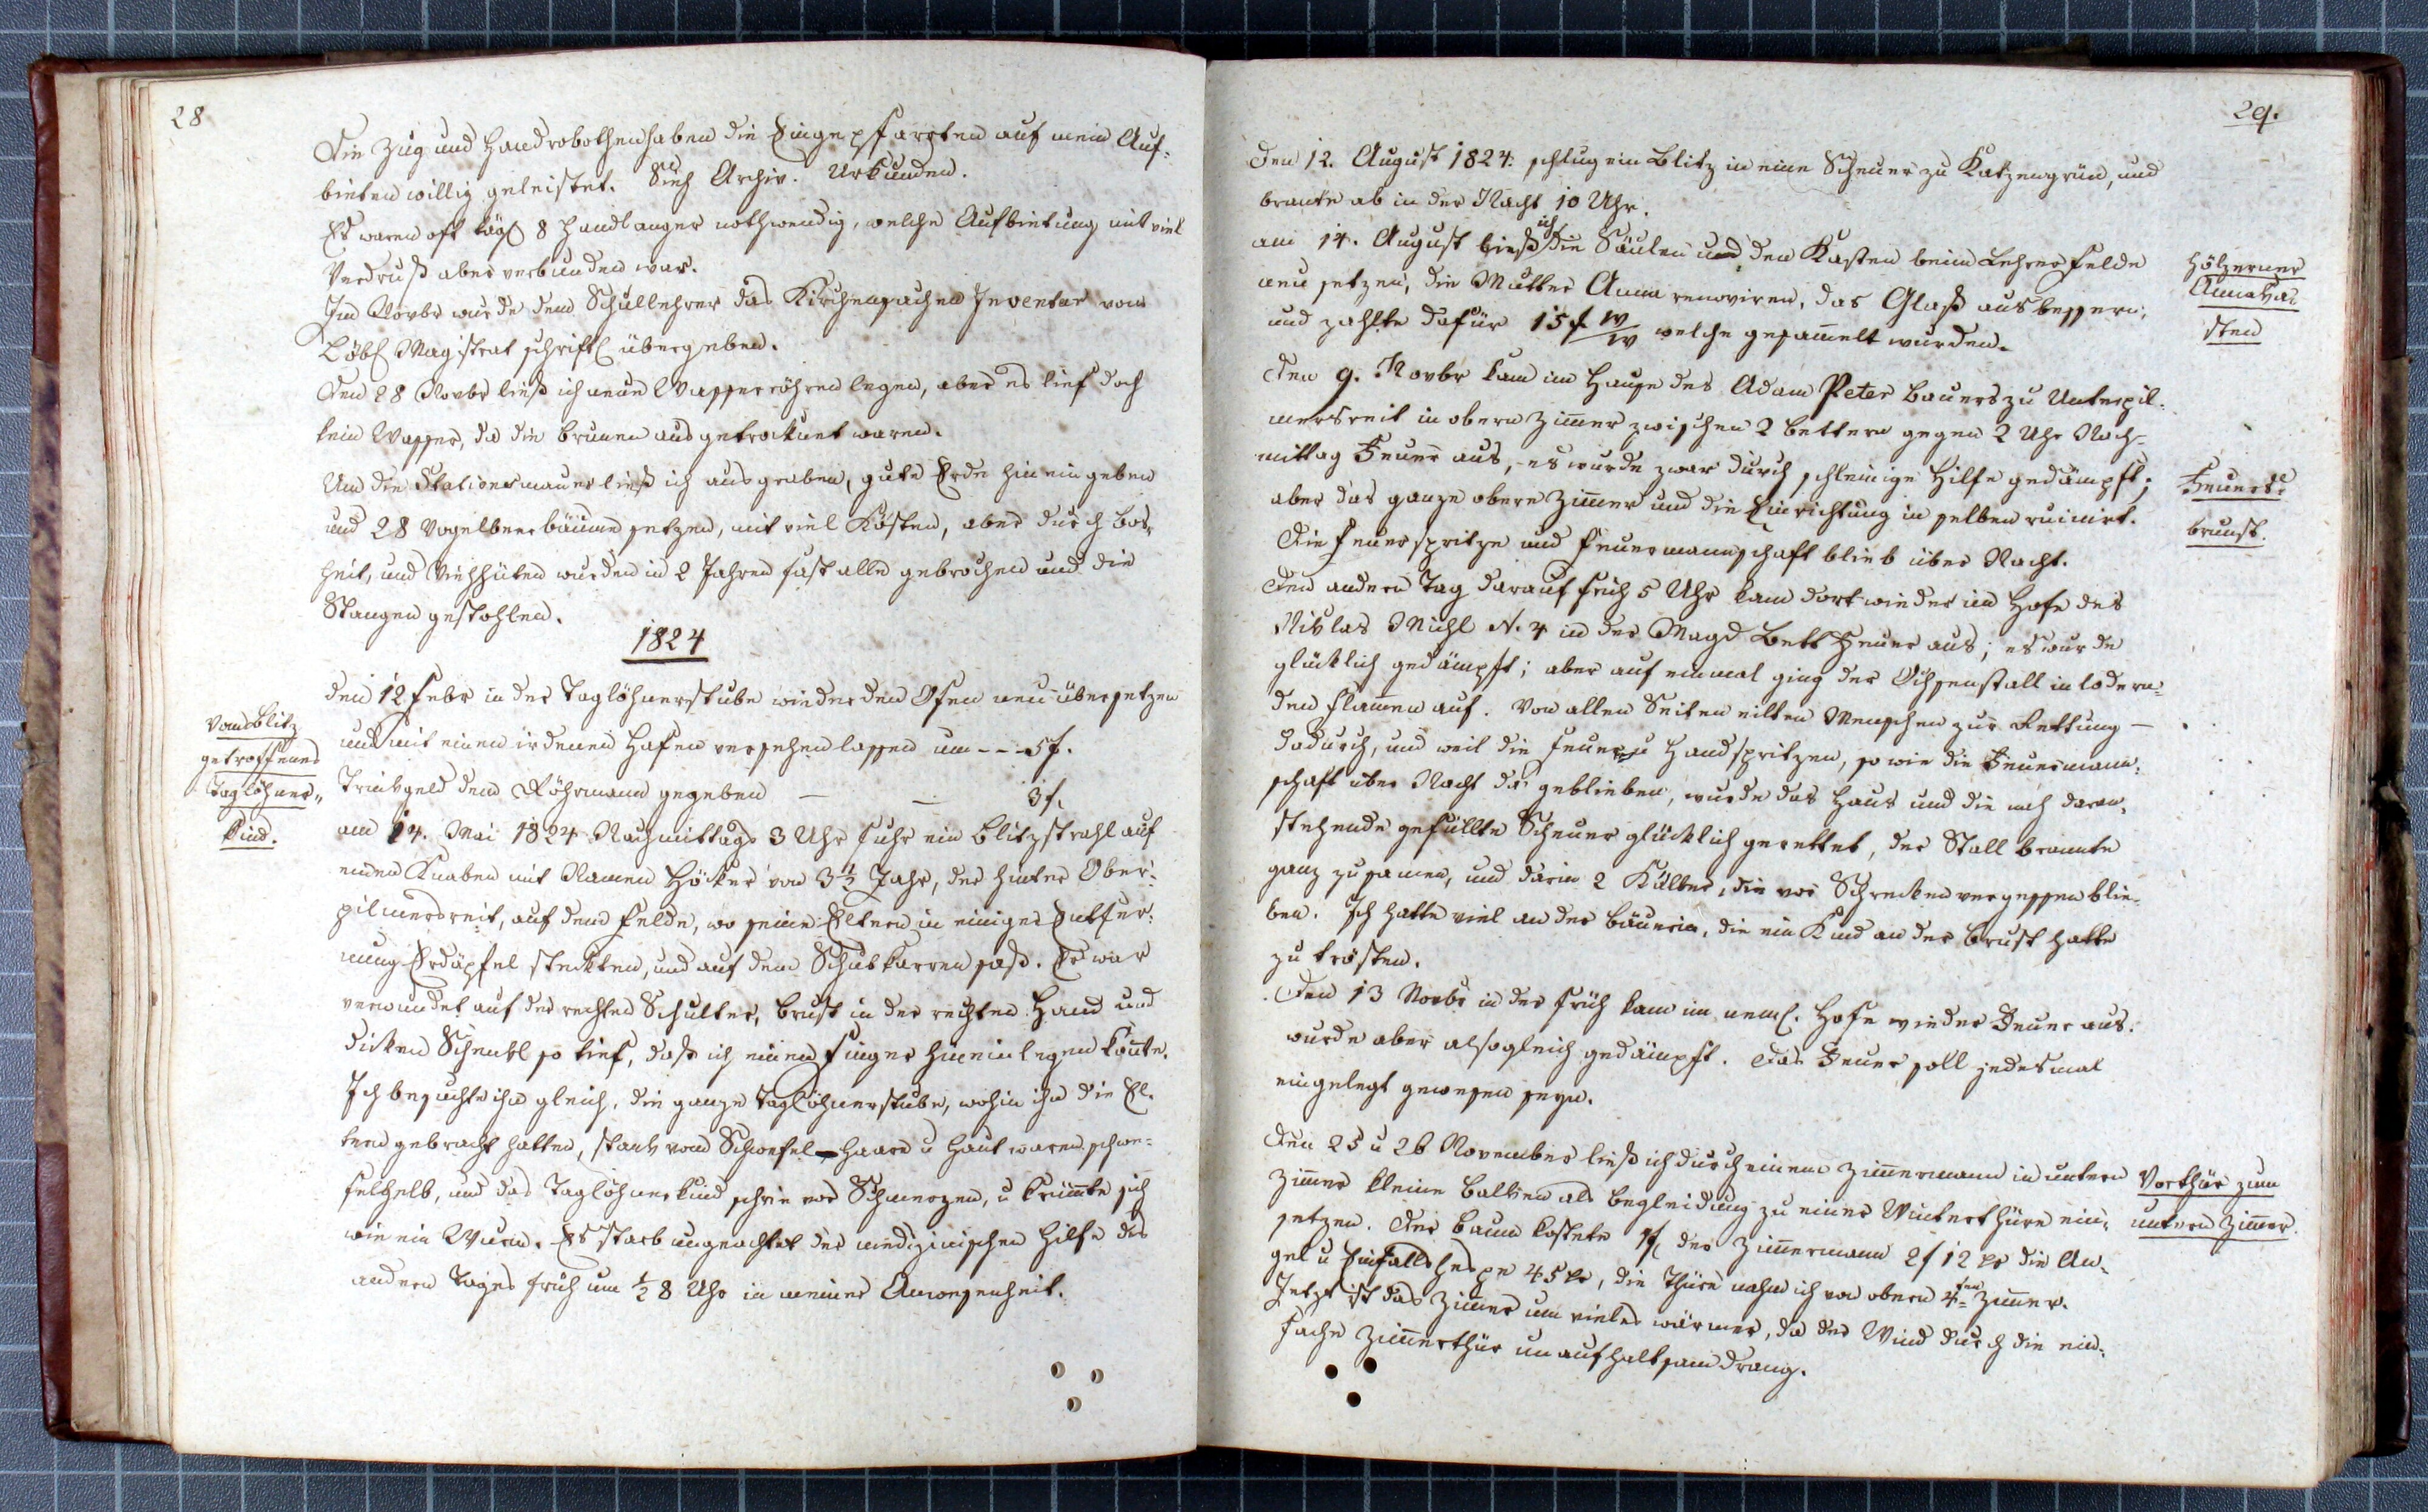 28
Die Zug und Handrobothen haben die Eingepfarrten auf mein Auf-
biethen willig geleistet. Sieh Archiv. Urkunden.
Es waren oft tägl 8 Handlanger nothwendig, welche Aufbietung mit viel
Verdruß aber verbunden war.
Im Novbr wurde dem Schullehrer das Kirchensachen Inventar vom
Löbl Magistrat schriftl übergeben.
Den 28 Novbr ließ ich neue Wasserröhren legen, aber es lief doch
kein Wasser, da die Brunen ausgetrocknet waren.
Um die Stationsmauer ließ ich ausgraben, gute Erde hineingeben
und 28 Vogelbeerbäume setzen, mit viel Kosten, aber durch Bos-
heit, und Viehhüten wurden in 2 Jahren fast alle gebrochen und die
Stangen gestohlen.
1824
den 12 Febr in der Taglöhnerstube wieder den Ofen neu übersetzen
und mit einen irdenen Hafen versehen lassen um --- 5 f.
Trinkgeld dem Röhrmann gegeben — — 3 f.
Vom Blitz
getroffenes
Taglöhner„
kind.
am 14. Mai 1824 Nachmittags 3 Uhr fuhr ein Blitzstrahl auf
einen Knaben mit Namen Höcker von 3 1/2 Jahr, der hinter Ober-
pilmersreit, auf dem Felde, wo seine Eltern in einiger Entfer-
nung Erdäpfel steckten, und auf dem Schubkarren saß. Er war
verwundet auf der rechten Schulter, Brust in der rechten Hand und
dicken Schenkl so tief, daß ich einen Finger hineinlegen konte.
Ich besuchte ihn gleich, die ganze Taglöhnerstube, wohin ihn die El-
tern gebracht hatten, stank vom Schwefel – Haare u Haut waren schwe-
felgelb, und das Taglöhnerkind schrie vor Schmerzen, u krümte sich
wie ein Wurm. Es starb ungeachtet der medizinischen Hilfe des
andern Tages früh um 1/2 8 Uhr in meiner Anwesenheit.
29.
Den 12. August 1824: schlug ein Blitz in eine Scheuer zu Katzengrün, und
brante ab in der Nacht 10 Uhr.
am 14. August ließ ich die Säulen und den Kasten beim Lehrerfelde
neu setzen, die Mutter Anna renoviren, das Glaß ausbessern,
und zahlte dafür 15 f W/W welche gesamelt wurden.
Hölzerner
Annaka-
sten
Den 9. Novbr kam im Hause des Adam Peter Bauers zu Unterpil-
mersreit in obern Zimer zwischen 2 Bettern gegen 2 Uhr Nach-
mittag Feuer aus, – es wurde zwar durch schleinige Hilfe gedämpft;
aber das ganze obere Zimer und die Einrichtung in selben ruinirt.
Die Feuerspritze und Feuermannschaft blieb über Nacht.
Feuers-
brunst.
Den andern Tag darauf früh 5 Uhr kam dort wieder im Hofe des
Niklas Michl N. 4 in der Magd Bett Feuer aus; es wurde
glücklich gedämpft; aber auf einmal ging der Ochsenstall in lodern-
den Flamen auf. Von allen Seiten eilten Menschen zur Rettung —
dadurch, und weil die Feuer u Handspritzen, so wie die Feuermann-
schaft über Nacht da geblieben, wurde das Haus und die nah daran-
stehende gefüllte Scheuer glücklich gerettet, der Stall brannte
ganz zusamen, und darin 2 Kälber, die vor Schrecken vergessen blie-
ben. Ich hatte viel an der Bäuerin, die ein Kind an der Brust hatte
zu trösten.
Den 13 Novbr in der Früh kam im neml. Hofe wieder Feuer aus.
wurde aber alsogleich gedämpft. Das Feuer soll jedesmal
eingelegt gewesen seyn.
Den 25 u 26 November ließ ich durch einem Zimermann in untern
Zimer kleine Balken als Begleidung zu einer Winterthüre ein-
setzen. Der Baum kostete 1 f der Zimermann 2 f 12 kr die An-
gel u Einfallshespe 45 kr, die Thüre nahm ich von obern 4ten Zimer.
Jetzt ist das Zimer um vieles wärmer, da der Wind durch die ein-
fache Zimerthür unaufhaltsam drang.
Vorthür zum
untern Zimer.